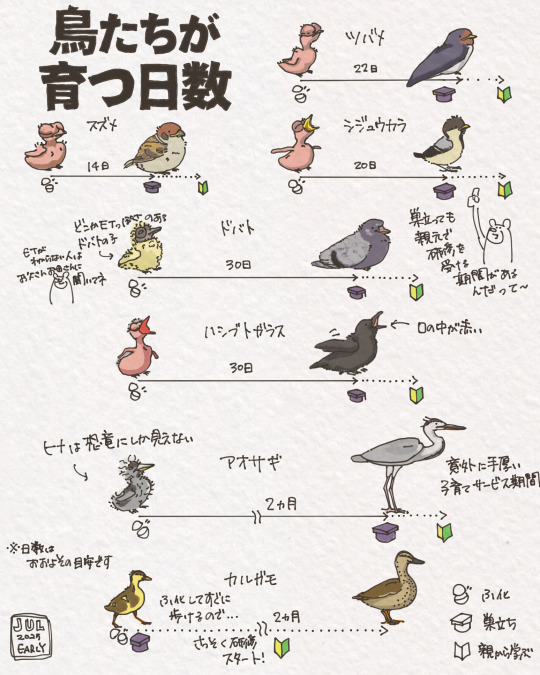 鳥たちが
育つ日数
ツバメ
22日
スズメ
14日
シジュウカラ
20日
どことなくETっぽさのある
ドバトの子
ETが
わからない人は
お父さんお母さんに
聞いてネ
ドバト
30日
巣立っても
親元で
研修を
受ける
期間がある
んだって〜
ハシブトガラス
30日
口の中が赤い
ヒナは恐竜にしか見えない
アオサギ
2ヵ月
意外に手厚い
子育てサービス期間
※日数は
おおよその目安です
カルガモ
ふ化してすぐに
歩けるので…
2ヵ月
さっそく研修
スタート!
ふ化
巣立ち
親から学ぶ
JUL
2025
EARLY